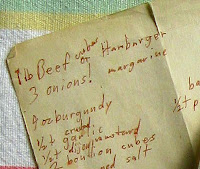 1 lb Beef cubes or Hamburger
3 onions! margarine
4 oz burgundy
1/2 t garlic
1/2 t dijon mustard
2 bouillon cubes
salt
ba
1/2 t p